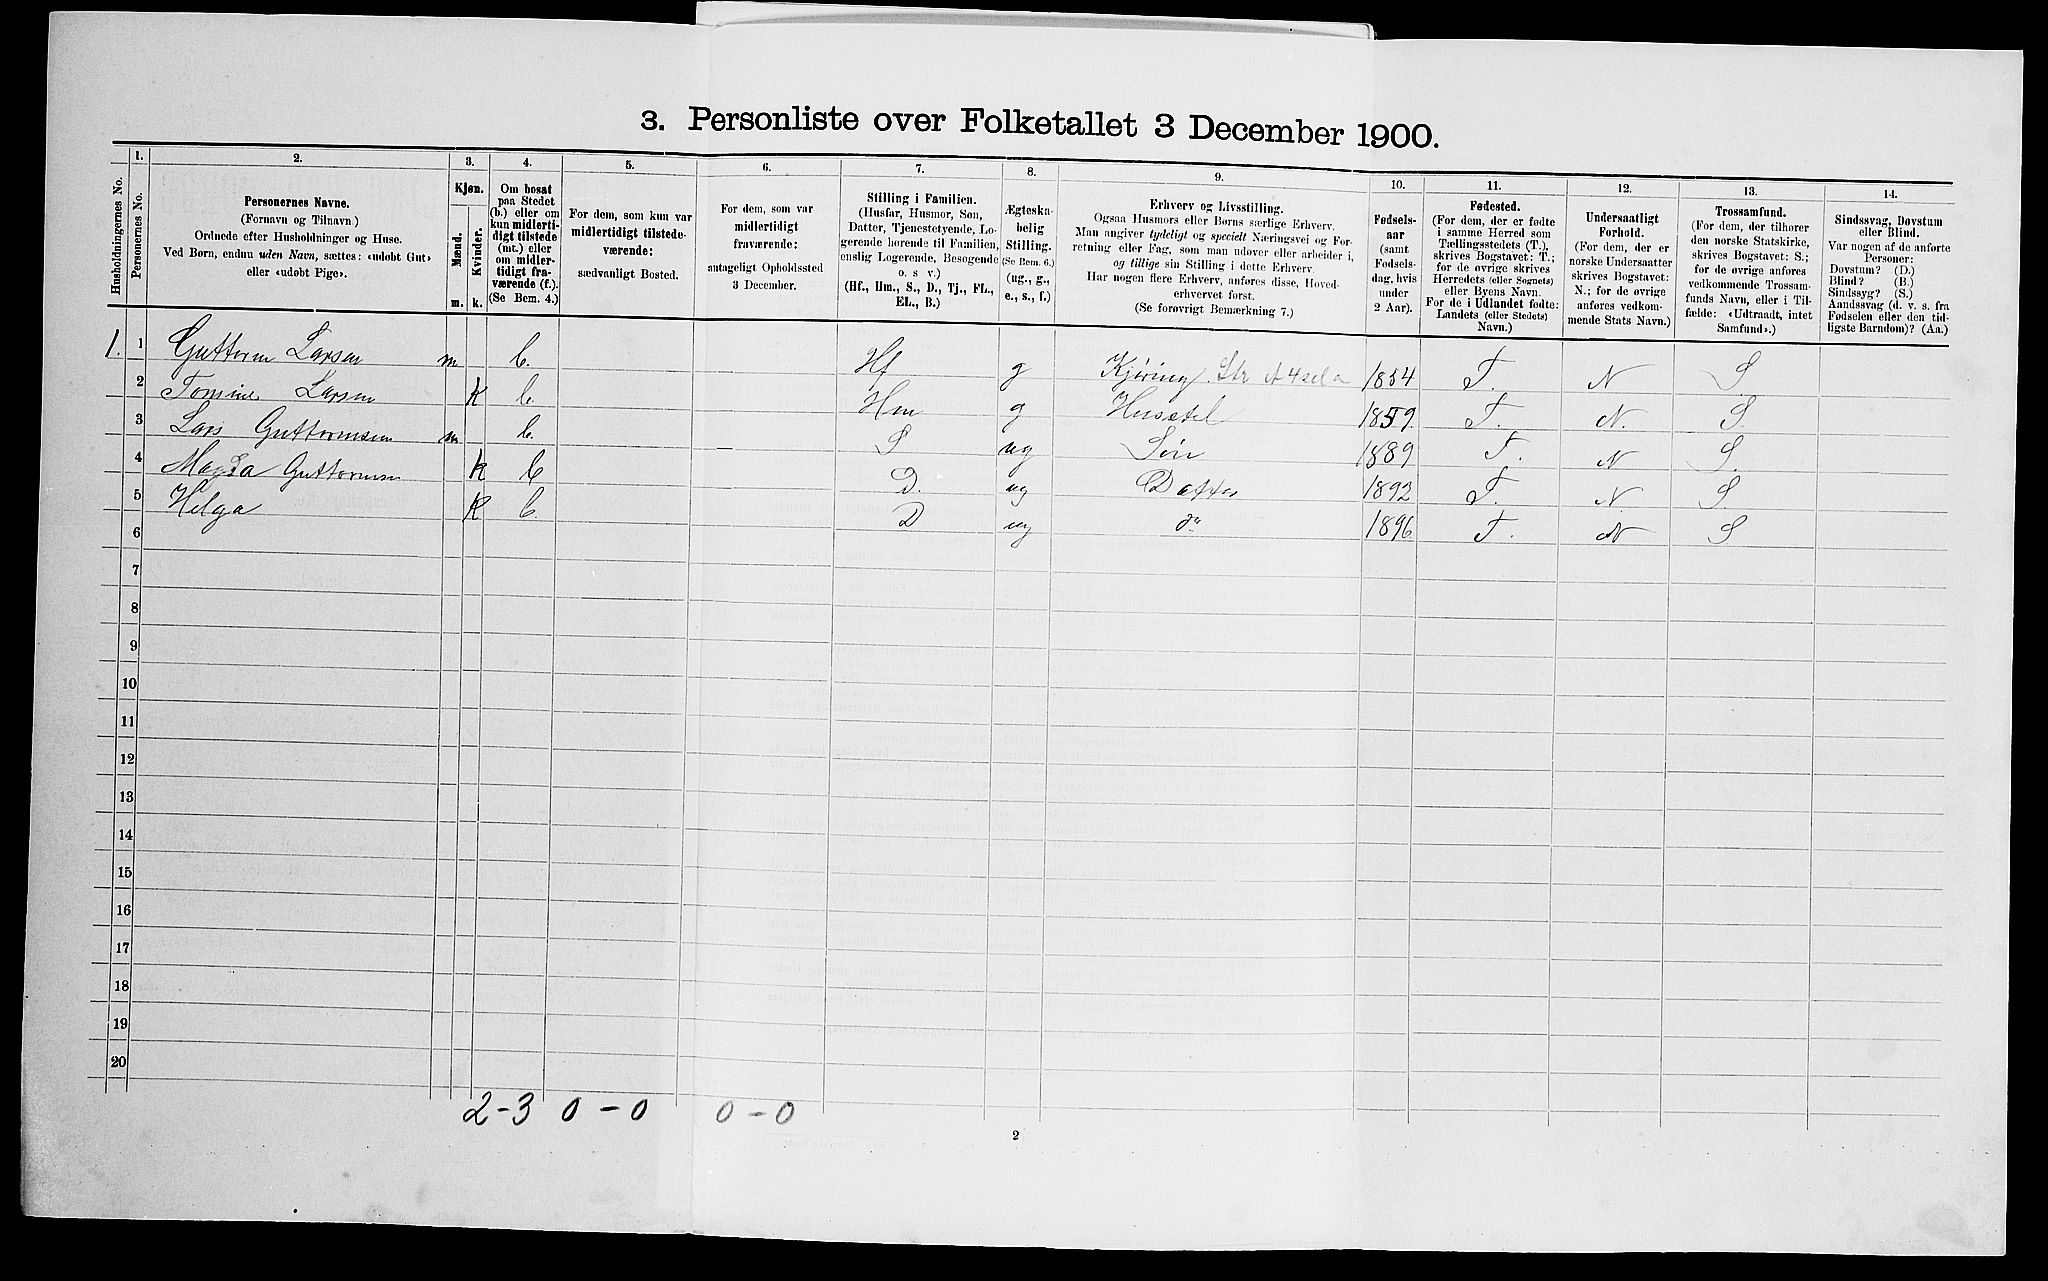 3. Personliste over Folketallet 3 December 1900.
Husholdningernes No.
1.
Personernes No.
2.
Personernes Navne.
(Fornavn og Tilnavn.)
Ordnede efter Husholdninger og Huse.
Ved Børn, endnu uden Navn, sættes: «udøbt Gut»
eller «udøbt Pige».
3.
Kjøn.
Mænd.
Kvinder.
m.
k.
4.
Om bosat
paa Stedet
(b.) eller om
kun midlerti-
digt tilstede
(mt.) eller
om midler-
tidigt fra-
værende (f.).
(Se Bem. 4.)
5.
For dem, som kun var
midlertidigt tilstede-
værende:
sædvanligt Bosted.
6.
For dem, som var
midlertidigt
fraværende:
antageligt Opholdssted
3 December.
7.
Stilling i Familien.
(Husfar, Husmor, Søn,
Datter, Tjenestetyende, Lo-
gerende hørende til Familien,
enslig Logerende, Besøgende
o. s v.)
(Hf., Hm., S., D., Tj., FL.,
EL., B.)
8.
Ægteska-
belig
Stilling.
(Se Bem. 6.)
(ug., g.,
e., s., f.)
9.
Erhverv og Livsstilling.
Ogsaa Husmors eller Børns særlige Erhverv.
Man angiver tydeligt og specielt Næringsvei og For-
retning eller Fag, som man udøver eller arbeider i,
og tillige sin Stilling i dette Erhverv.
Har nogen flere Erhverv, anføres disse, Hoved-
erhvervet først.
(Se forøvrigt Bemærkning 7.)
10.
Fødsels-
aar
(samt
Fødsels-
dag, hvis
under
2 Aar).
11.
Fødested.
(For dem, der er fødte
i samme Herred som
Tællingsstedets (T.),
skrives Bogstavet: T.;
for de øvrige skrives
Herredets (eller Sognets)
eller Byens Navn.
For de i Udlandet fødte:
Landets (eller Stedets)
Navn.)
12.
Undersaatligt
Forhold.
(For dem, der er
norske Undersaatter
skrives Bogstavet:
N.; for de øvrige
anføres vedkom-
mende Stats Navn.)
13.
Trossamfund.
(For dem, der tilhører
den norske Statskirke,
skrives Bogstavet: S.;
for de øvrige anføres
vedkommende Trossam-
funds Navn, eller i Til-
fælde: «Udtraadt, intet
Samfund».)
14.
Sindssvag, Døvstum
eller Blind.
Var nogen af de anførte
Personer:
Døvstum? (D.)
Blind? (B.)
Sindssyg? (S.)
Aandssvag (d. v. s. fra
Fødselen eller den tid-
ligste Barndom)? (Aa.)
1. 1 Guttorm Larsen m b. Hf g Kjøring 1854 T. N S.
2 Tomine Larsen K b. Hm g Husstel 1859 T. N. S.
3 Lars Guttormsen m b. S ug Søn 1889 T. N S.
4 Magda Guttormsen K b D. ug Datter 1892 T. N. S.
5 Helga K b. D ug do 1896 T. N S.
6
7
8
9
10
11
12
13
14
15
16
17
18
19
20
2-3 0-0 0-0
2